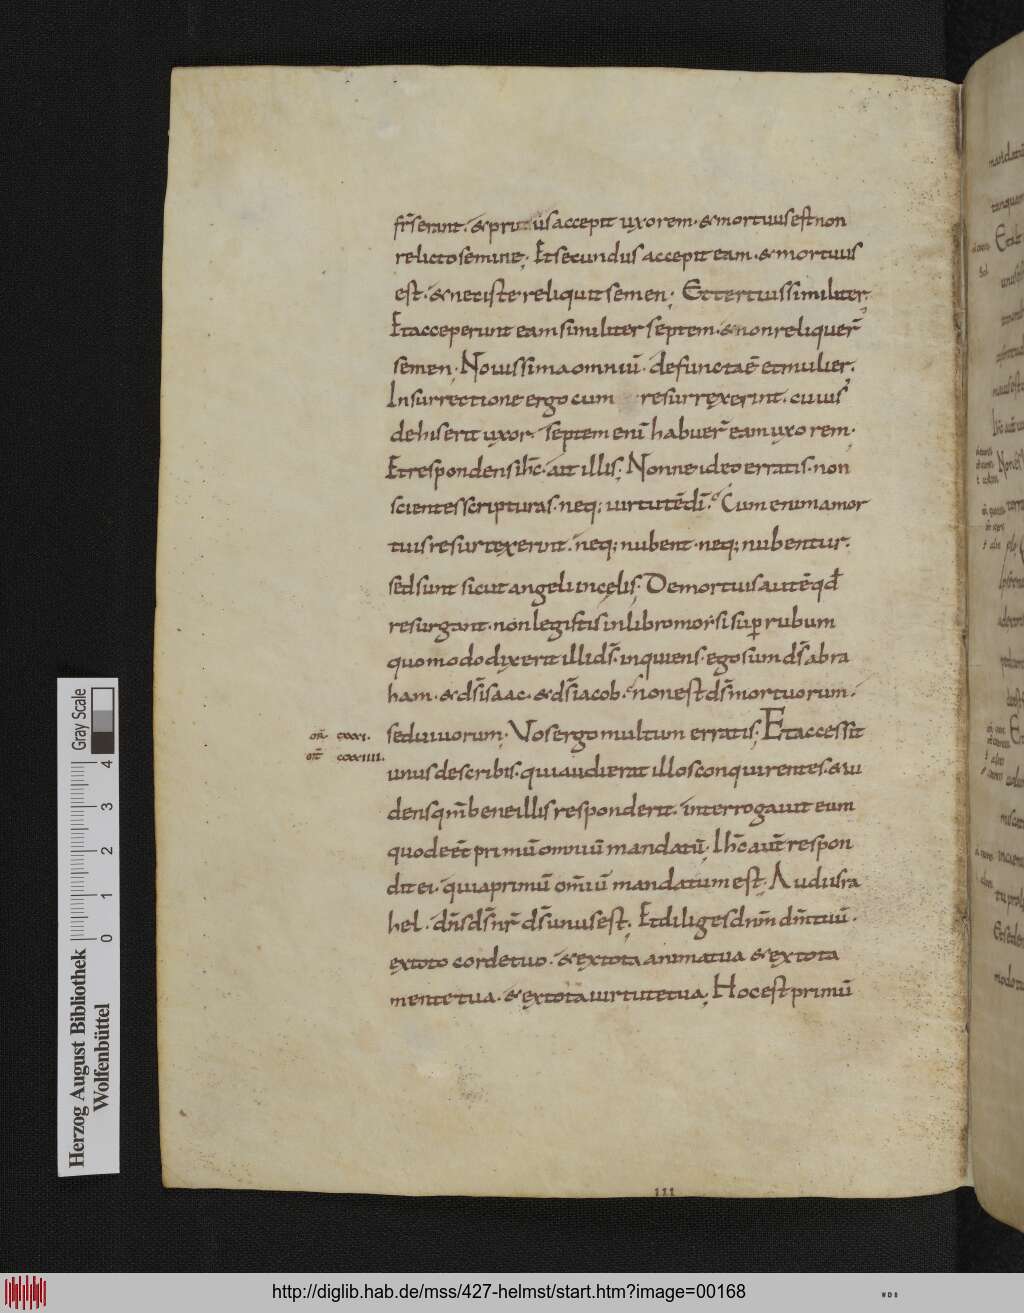 fr̄s erant. & primus accepit uxorem. & mortuus est non
relicto semine; Et secundus accepit eam. & mortuus
est. & nec iste reliquit semen; Et tertius similiter;
Et acceperunt eam similiter septem. & non reliquer̄
semen; Nouissima omniū. defuncta ē et mulier.
In surrectione ergo cum resurrexerint. cuius
de his erit uxor septem eni habuer̄ eam uxorem.
Et respondens ih̄c. ait illis; Nonne ideo erratis. non
scientes scripturas. neq; uirtutē dī. Cum enim a mor
tuis resurrexerint. neq; nubent. neq; nubentur.
sed sunt sicut angeli in cęlis; De mortuis autē qđ
resurgant. non legistis in libro morsi sup̄ rubum
quomodo dixerit illi ds̄. inquiens. ego sum ds̄ abra
ham. & ds̄ isaac. & ds̄ iacob. non est ds̄ mortuorum.
sed uiuorum; Vos ergo multum erratis; Et accessit
unus de scribis. qui audierat illos conquirentes. & ui
dens qm̄ bene illis responderit. interrogauit eum
quod eēt primū omniū mandatū; Ih̄c aut̄ respon
dit ei. quia primū om̄iū mandatum est; Audi isra
hel. dn̄s ds̄ nr̄ ds̄ unus est; Et diliges dnm̄ dm̄ tuū.
ex toto corde tuo. & ex tota anima tua & ex tota
mente tua. & ex tota uirtute tua; Hoc est primū
cxxxi.
ccxxiiii.
111
Gray Scale
0 1 2 3 4
Herzog August Bibliothek
Wolfenbüttel
http://diglib.hab.de/mss/427-helmst/start.htm?image=00168